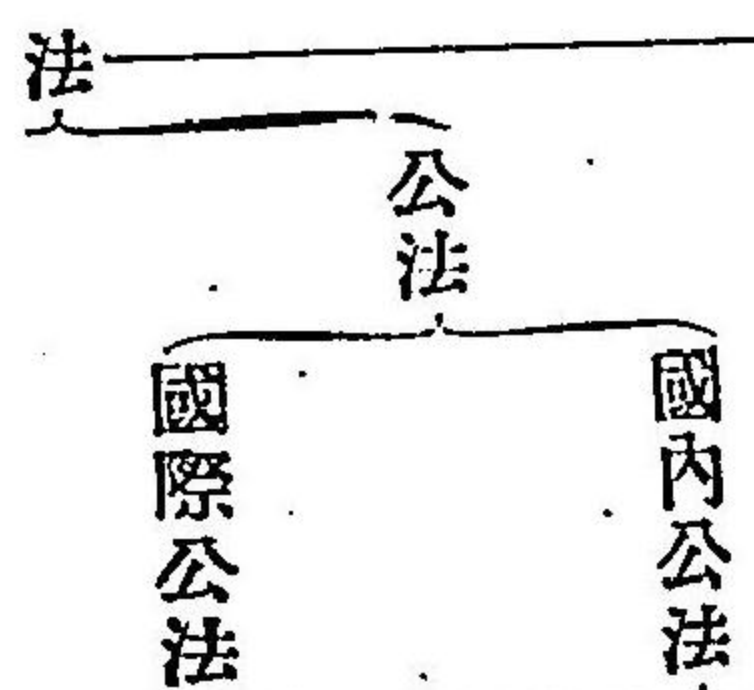 法
公法
國內公法
國際公法